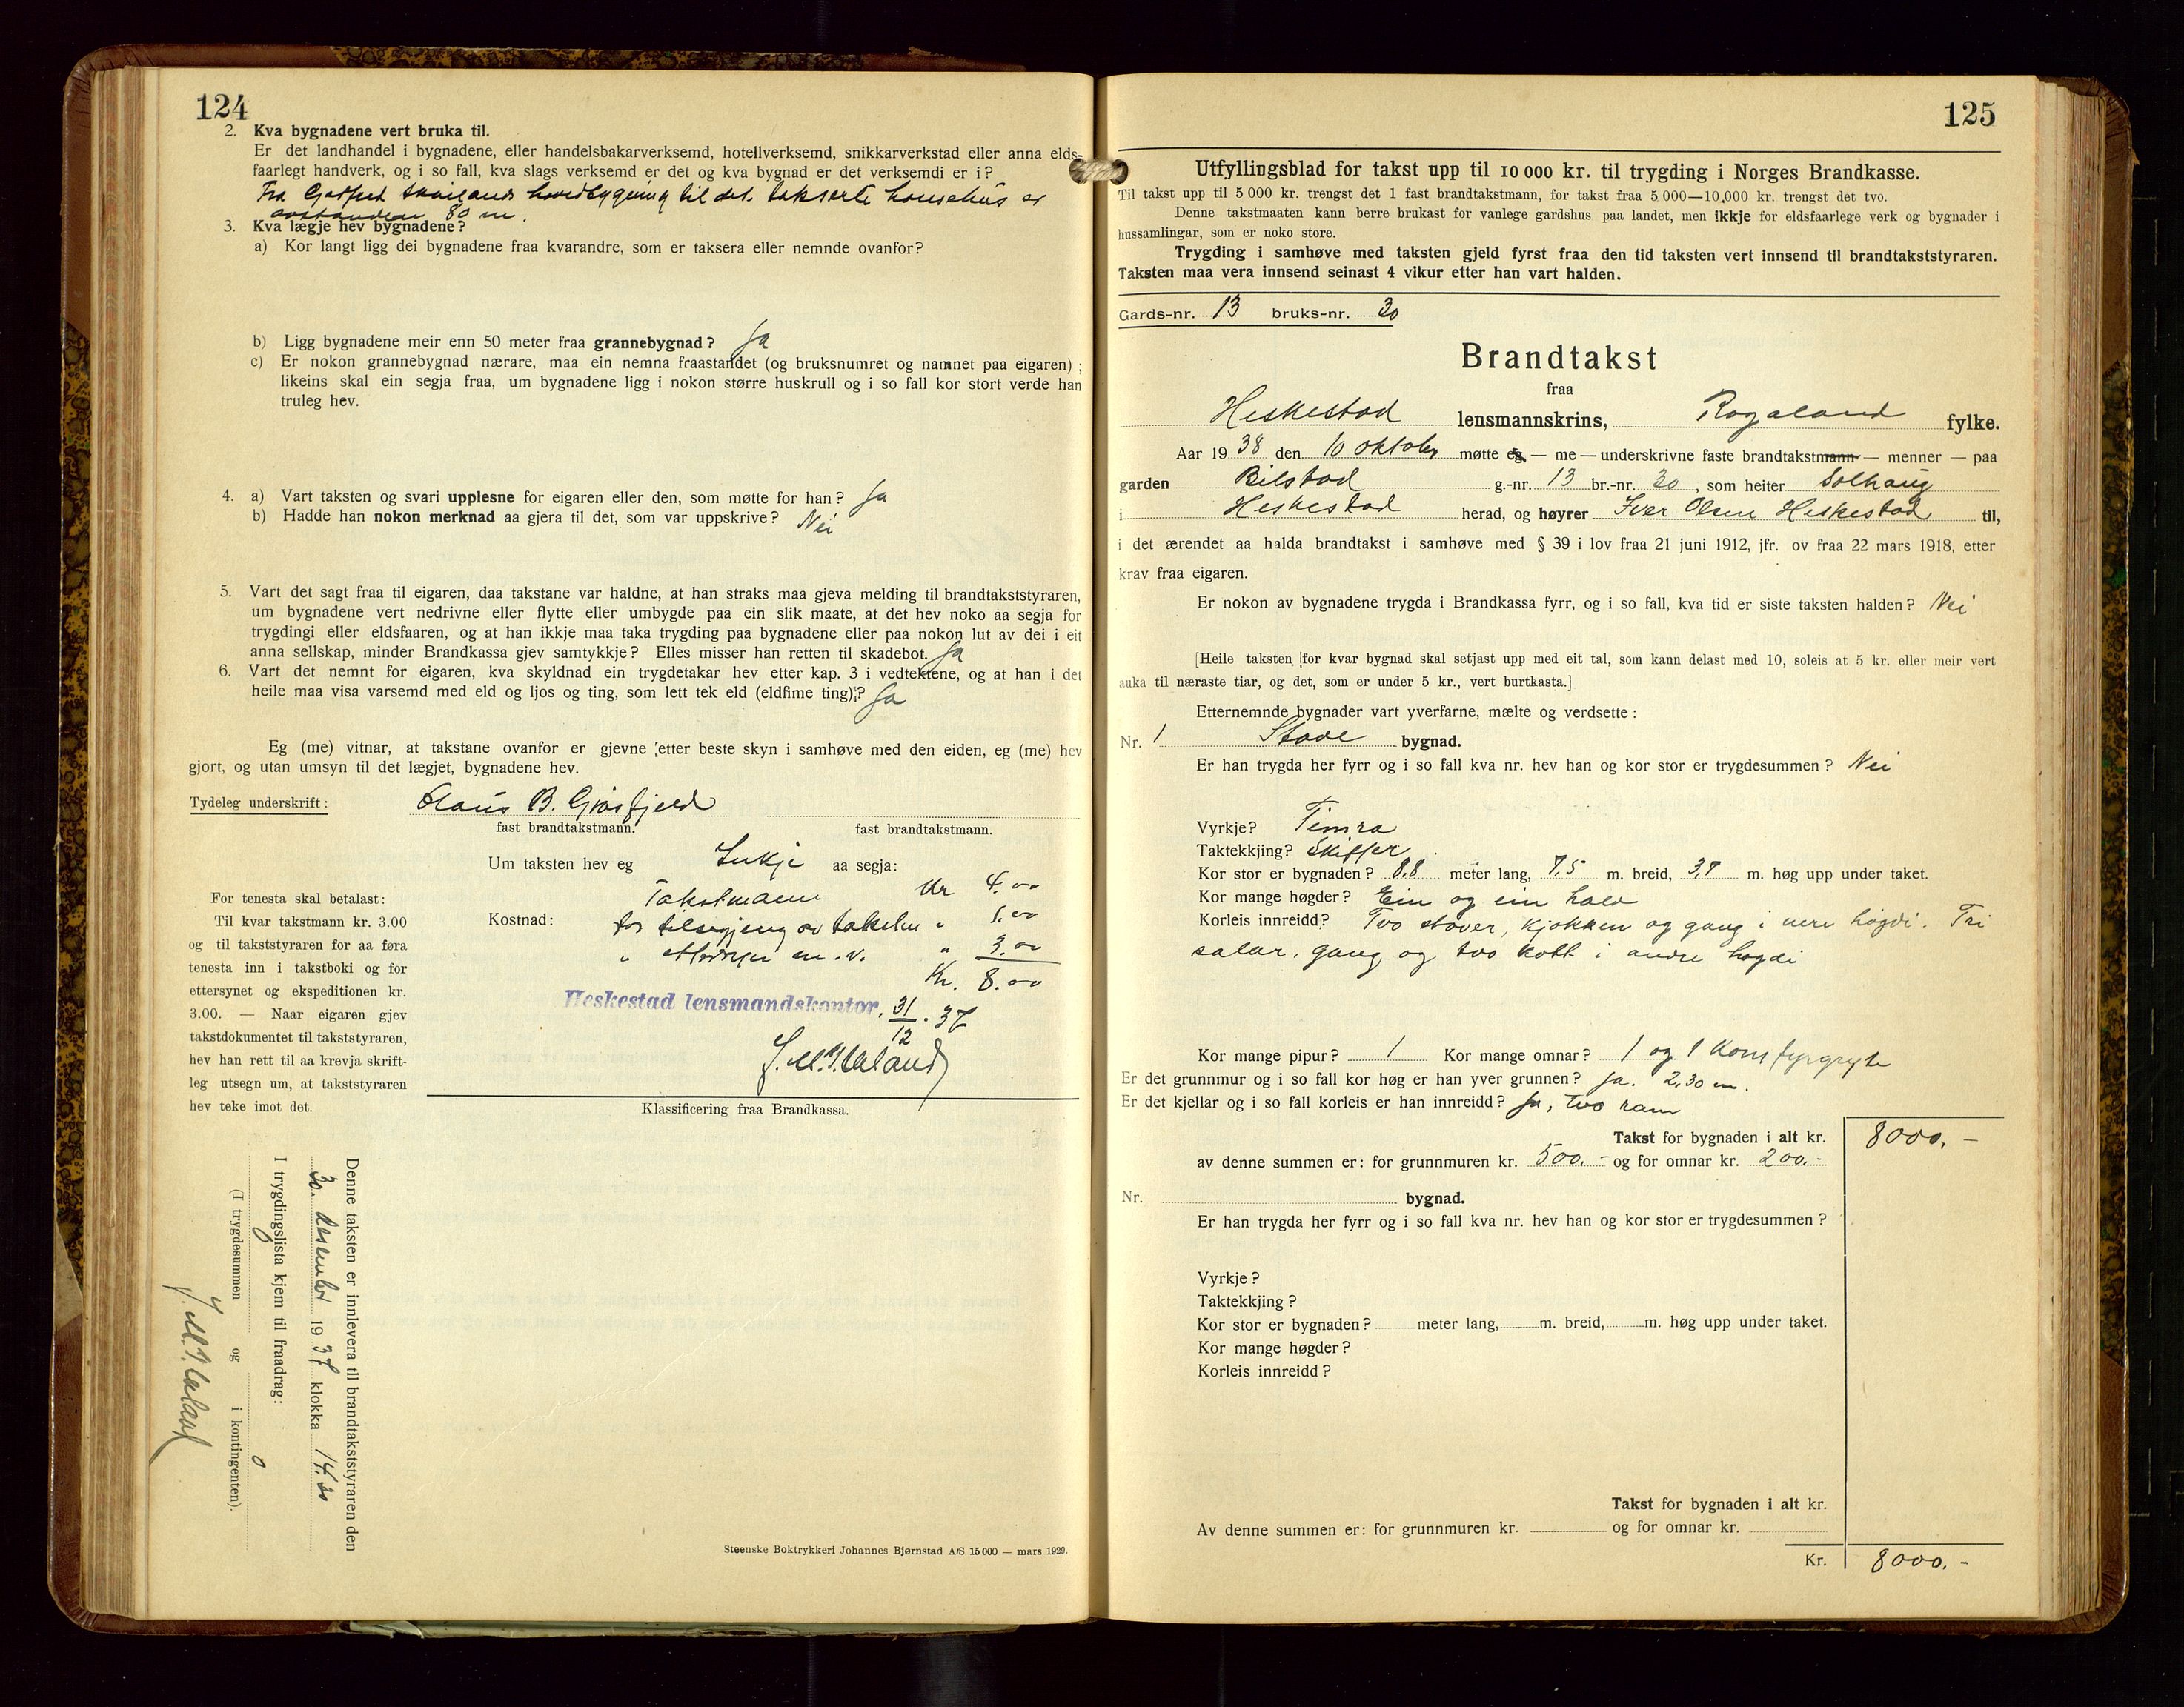 124
2. Kva bygnadene vert bruka til.
Er det landhandel i bygnadene, eller handelsbakarverksemd, hotellverksemd, snikkarverkstad eller anna elds-
faarlegt handverk, og i so fall, kva slags verksemd er det og kva bygnad er det verksemdi er i?
Fra hovedbygning til det takserte er
avstanden 80 m.
3. Kva lægje hev bygnadene?
a) Kor langt ligg dei bygnadene fraa kvarandre, som er taksera eller nemnde ovanfor?
b) Ligg bygnadene meir enn 50 meter fraa grannebygnad? Ja
c) Er nokon grannebygnad nærare, maa ein nemna fraastandet (og bruksnumret og namnet paa eigaren);
likeins skal ein segja fraa, um bygnadene ligg i nokon større huskrull og i so fall kor stort verde han
truleg hev.
4. a) Vart taksten og svari upplesne for eigaren eller den, som møtte for han? Ja
b) Hadde han nokon merknad aa gjera til det, som var uppskrive? Nei
5. Vart det sagt fraa til eigaren, daa takstane var haldne, at han straks maa gjeva melding til brandtakststyraren,
um bygnadene vert nedrivne eller flytte eller umbygde paa ein slik maate, at det hev noko aa segja for
trygdingi eller eldsfaaren, og at han ikkje maa taka trygding paa bygnadene eller paa nokon lut av dei i eit
anna sellskap, minder Brandkassa gjev samtykkje? Elles misser han retten til skadebot. Ja
6. Vart det nemnt for eigaren, kva skyldnad ein trygdetakar hev etter kap. 3 i vedtektene, og at han i det
heile maa visa varsemd med eld og ljos og ting, som lett tek eld (eldfime ting)? Ja
Eg (me) vitnar, at takstane ovanfor er gjevne etter beste skyn i samhøve med den eiden, eg (me) hev
gjort, og utan umsyn til det lægjet, bygnadene hev.
Tydeleg underskrift: Claus B. Grøsfjeld
fast brandtakstmann. fast brandtakstmann.
Um taksten hev eg Inkje aa segja:
Takstmann Kr 4.00
Kostnad: for av taksten " 1.00
" m. v. " 3.00
Kr. 8.00
Heskestad lensmandskontor, 31/12. 37
For tenesta skal betalast:
Til kvar takstmann kr. 3.00
og til takststyraren for aa føra
tenesta inn i takstboki og for
ettersynet og ekspeditionen kr.
3.00. — Naar eigaren gjev
takstdokumentet til takststyraren,
hev han rett til aa krevja skrift-
leg utsegn um, at takststyraren
hev teke imot det.
Klassificering fraa Brandkassa.
Denne taksten er innlevera til brandtakststyraren den
30. desember 1937 klokka 14.30
I trygdingslista kjem til fraadrag:
(I trygdesummen og i kontingenten).
Steenske Boktrykkeri Johannes Bjørnstad A/S 15 000 — mars 1929.
125
Utfyllingsblad for takst upp til 10 000 kr. til trygding i Norges Brandkasse.
Til takst upp til 5 000 kr. trengst det 1 fast brandtakstmann, for takst fraa 5 000—10,000 kr. trengst det tvo.
Denne takstmaaten kann berre brukast for vanlege gardshus paa landet, men ikkje for eldsfaarlege verk og bygnader i
hussamlingar, som er noko store.
Trygding i samhøve med taksten gjeld fyrst fraa den tid taksten vert innsend til brandtakststyraren.
Taksten maa vera innsend seinast 4 vikur etter han vart halden.
Gards-nr. 13 bruks-nr. 30
Brandtakst
fraa
Heskestad lensmannskrins, Rogaland fylke.
Aar 1938 den 10 oktober møtte eg — me — underskrivne faste brandtakstmann — menner — paa
garden Bilstad g.-nr. 13 br.-nr. 30, som heiter Solhaug
i Heskestad herad, og høyrer Iver Olsen Heskestad til,
i det ærendet aa halda brandtakst i samhøve med § 39 i lov fraa 21 juni 1912, jfr. ov fraa 22 mars 1918, etter
krav fraa eigaren.
Er nokon av bygnadene trygda i Brandkassa fyrr, og i so fall, kva tid er siste taksten halden? Nei
[Heile taksten for kvar bygnad skal setjast upp med eit tal, som kann delast med 10, soleis at 5 kr. eller meir vert
auka til næraste tiar, og det, som er under 5 kr., vert burtkasta.]
Etternemnde bygnader vart yverfarne, mælte og verdsette:
Nr. 1 Stove bygnad.
Er han trygda her fyrr og i so fall kva nr. hev han og kor stor er trygdesummen? Nei
Vyrkje? Timra
Taktekkjing? Skiffer
Kor stor er bygnaden? 8,8 meter lang, 7,5 m. breid, 3,7 m. høg upp under taket.
Kor mange høgder? Ein og ein halv
Korleis innreidd? Tvo stover, kjøkken og gang i nere høgdi. Tri
salar, gang og tvo kott i andre høgdi
Kor mange pipur? 1 Kor mange omnar? 1 og 1 Komfyrgryte
Er det grunnmur og i so fall kor høg er han yver grunnen? Ja. 2,30 m.
Er det kjellar og i so fall korleis er han innreidd? Ja, tvo rom
Takst for bygnaden i alt kr. 8000,-
av denne summen er: for grunnmuren kr. 500.- og for omnar kr. 200.-
Nr. bygnad.
Er han trygda her fyrr og i so fall kva nr. hev han og kor stor er trygdesummen?
Vyrkje?
Taktekkjing?
Kor stor er bygnaden? meter lang, m. breid, m. høg upp under taket.
Kor mange høgder?
Korleis innreidd?
Takst for bygnaden i alt kr.
Av denne summen er: for grunnmuren kr. og for omnar kr.
Kr. 8000.-